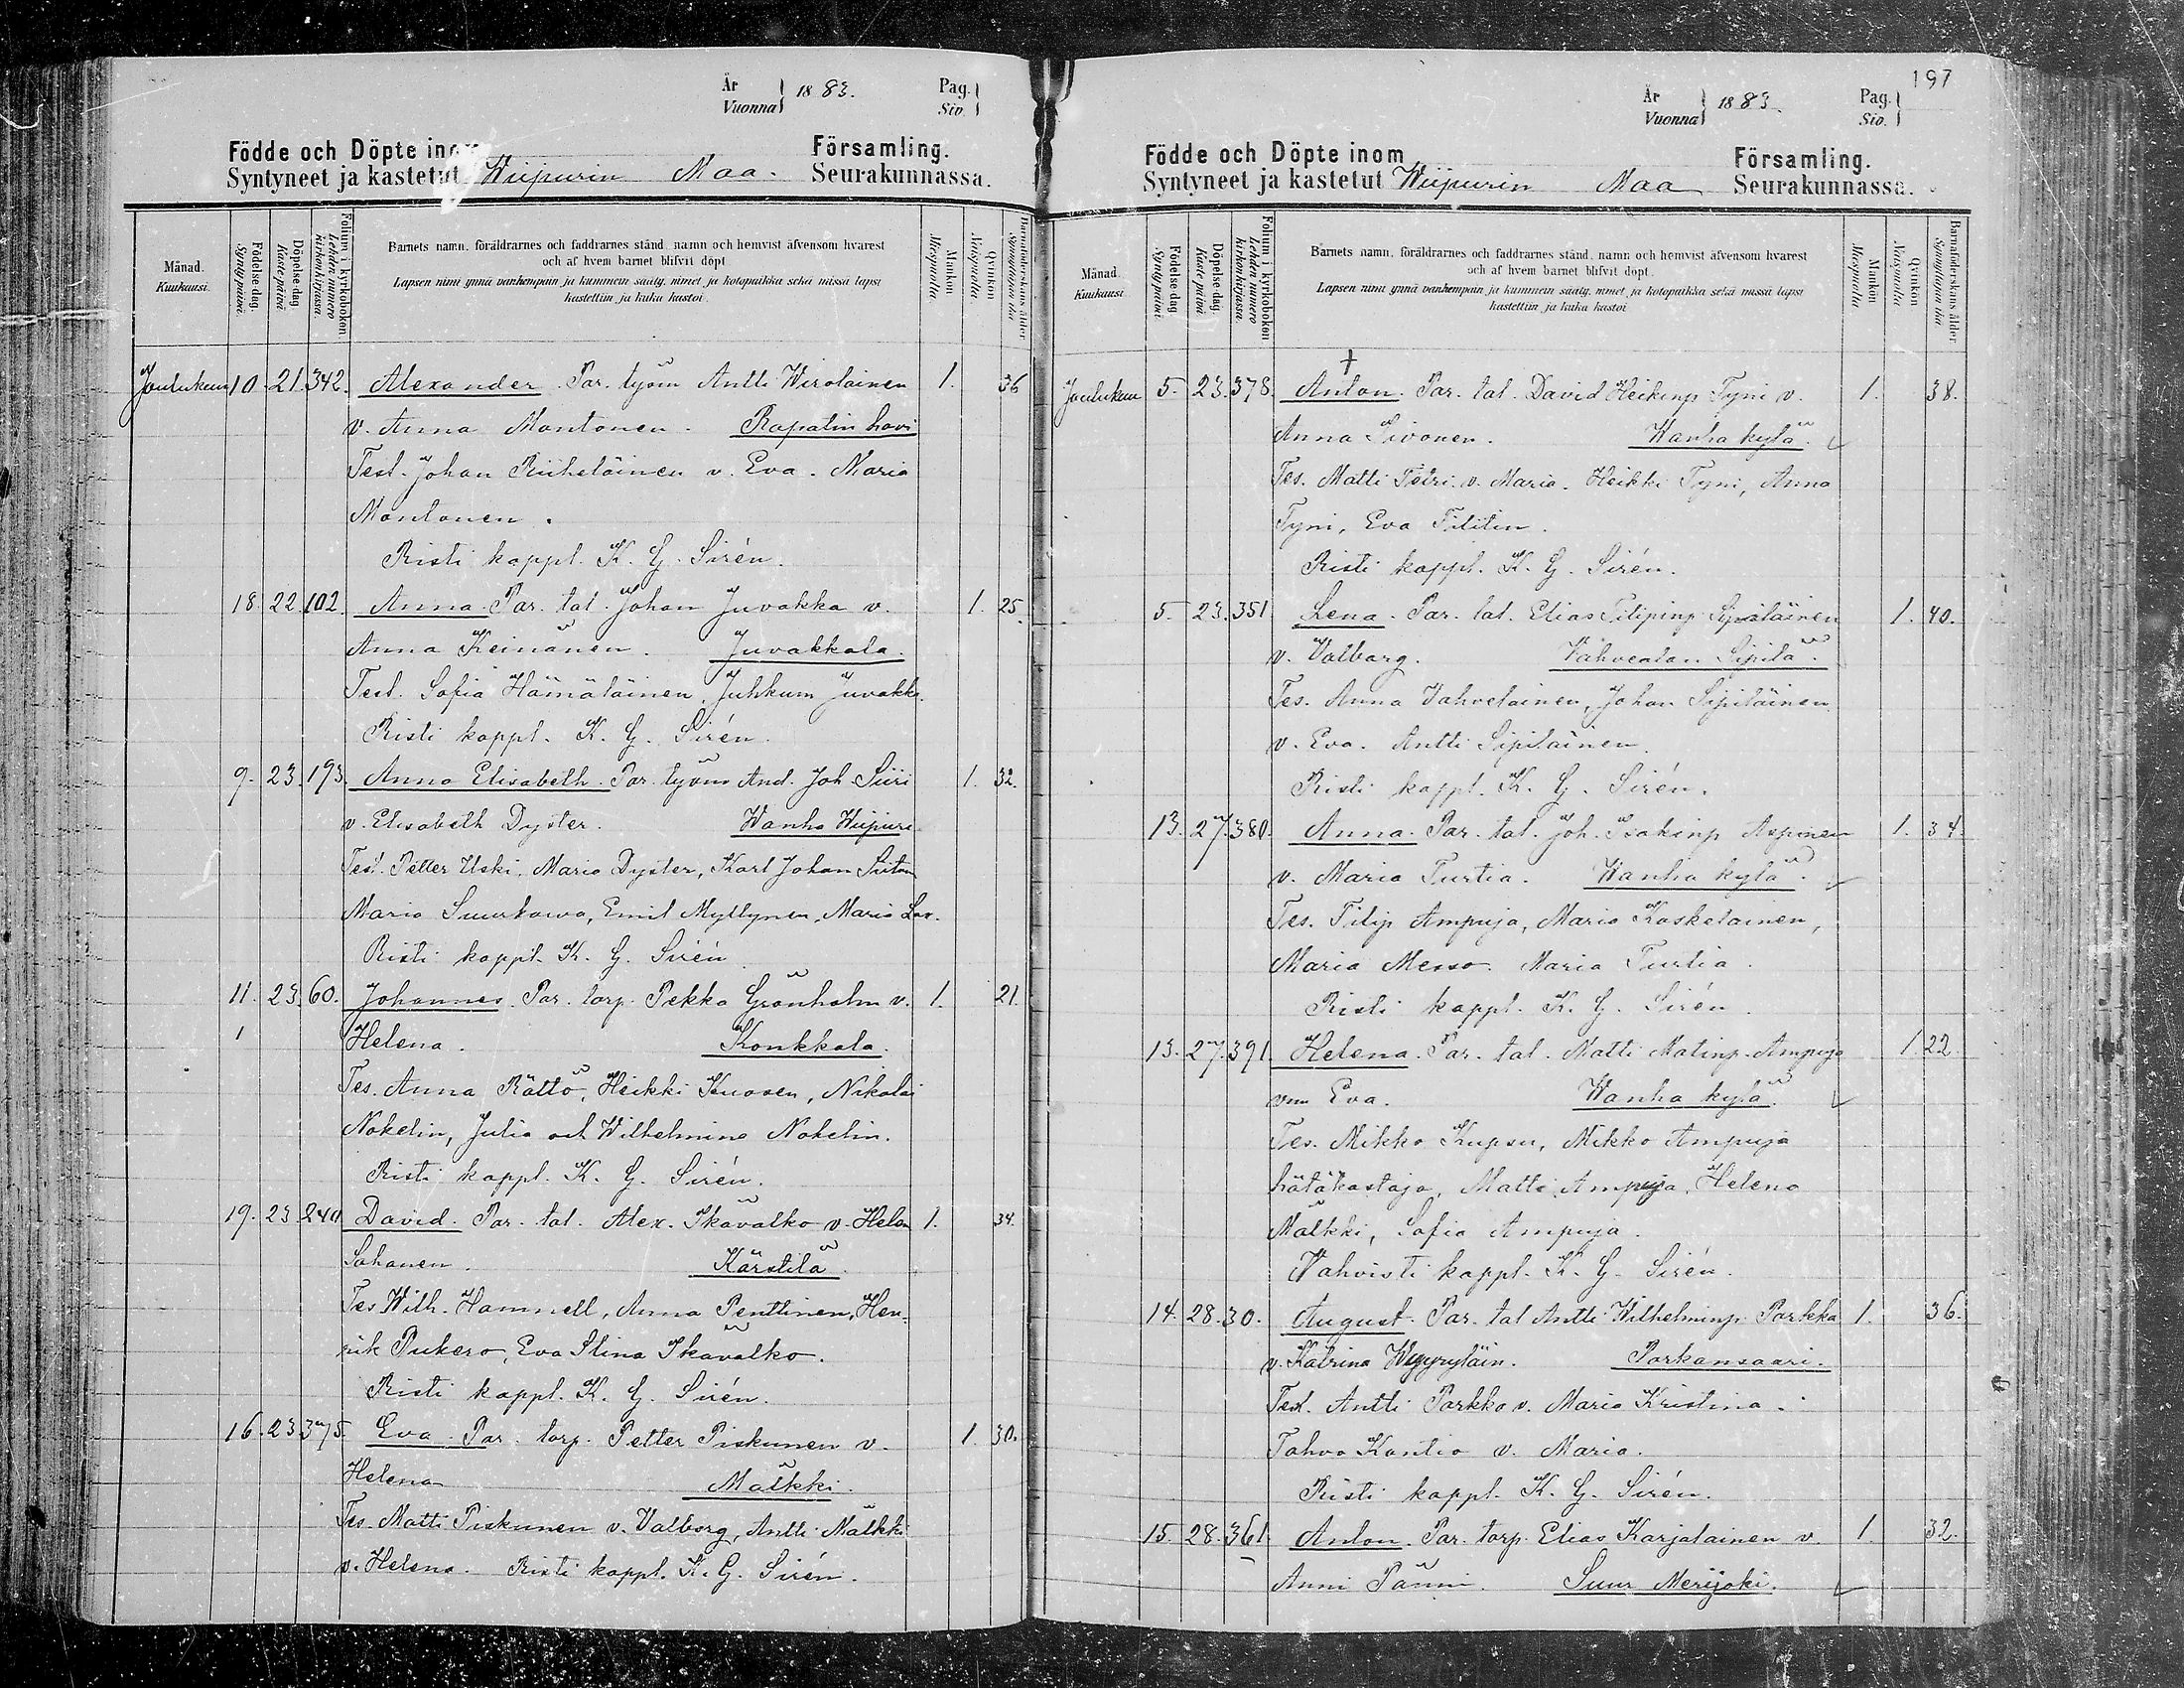 År Vuonna } 1883. Pag. Siv. }
Födde och Döpte inom Församling.
Syntyneet ja kastetut Wiipurin Maa. Seurakunnassa.
Månad. Kuukausi.
Födelse-dag. Syntypäivä.
Döpelse-dag. Kastepäivä
Folium i kyrkoboken Lehden numero kirkonkirjassa.
Barnets namn, föräldrarnes och faddrarnes stånd, namn och hemvist äfvensom hvarest
och af hvem barnet blifvit döpt.
Lapsen nimi ynnä vanhempain ja kummein sääty, nimet ja kotopaikka sekä missä lapsi
kastettiin ja kuka kastoi.
Mankön Miespuolta
Qvinkön Naispuolta
Barnaföderskans ålder Synnyttäjän ikä
Joulukuu 10. 21. 342. Alexander. Par. työm Antti Wirolainen 1. 36
v. Anna Montonen. Rapatin hovi
Test. Johan Riiheläinen v. Eva. Maria
Montonen.
Risti kappl. K. G. Sirén.
18. 22. 102. Anna. Par. tal. Johan Juvakka v. 1. 25.
Anna Keinänen. Juvakkala.
Test. Sofia Hämäläinen, Juhkum Juvakka.
Risti kappl. K. G. Sirén.
9. 23. 193. Anna Elisabeth. Par. työm And. Joh. Siiri 1. 32.
v. Elisabeth Dyster. Wanha Wiipuri
Test. Petter Uski, Maria Dyster, Karl Johan
Maria Suurkawa, Emil Myllynen, Maria
Risti kappl. K. G. Sirén
11. 23. 60. Johannes. Par. torp. Pekka Grönholm v. 1. 21.
Helena. Konkkala.
Tes. Anna Rättö, Heikki Kuosen, Nikolai
Nokelin, Julia och Wilhelmina Nokelin.
Risti kappl. K. G. Sirén.
19. 23. 240 David. Par. tal. Alex. Ikävalko v. Helen 1. 34.
Sohanen. Kärstilä.
Tes. Wilh. Hamnell, Anna Penttinen, Hen-
rik Pukero, Eva Stina Ikävalko.
Risti kappl. K. G. Sirén.
16. 23. 375. Eva. Par. torp. Petter Piskunen v. 1. 30.
Helena Mälkki.
Tes. Matti Piskunen v. Valborg, Antti Mälkki
v. Helena. Risti kappl. K. G. Sirén.
197
År Vuonna } 1883. Pag. Siv. }
Födde och Döpte inom Församling.
Syntyneet ja kastetut Wiipurin Maa Seurakunnassa.
Månad. Kuukausi
Födelse-dag Syntypäivä
Döpelse-dag. Kastepäivä
Folium i kyrkoboken Lehden numero kirkonkirjassa.
Barnets namn, föräldrarnes och faddrarnes stånd, namn och hemvist äfvensom hvarest
och af hvem barnet blifvit döpt.
Lapsen nimi ynnä vanhempain ja kummein sääty, nimet ja kotopaikka sekä missä lapsi
kastettiin ja kuka kastoi
Mankön Miespuolta
Qvinkön Naispuolta
Barnaföderskans ålder Synnyttäjän ikä
†
Joulukuu 5. 23. 378. Anton. Par. tal. David Heikinp Tyni v. 1. 38.
Anna Sivonen. Wanha kylä.
Tes. Matti Petri v. Maria. Heikki Tyni, Anna
Tyni, Eva
Risti kappl. K. G. Sirén.
5. 23. 351 Lena. Par. tal. Elias Filipinp Sipiläinen 1. 40.
v. Valborg. Vahvealan Sipilä.
Tes. Anna Vahvelainen, Johan Sipiläinen
v. Eva. Antti Sipiläinen.
Risti kappl. K. G. Sirén.
13. 27. 380. Anna. Par. tal. Joh. Isakinp Asponen 1. 34.
v. Maria Turtia. Wanha kylä.
Tes. Filip Ampuja, Maria Koskelainen,
Maria Messo. Maria Turtia.
Risti kappl. K. G. Sirén.
13. 27. 391 Helena. Par. tal. Matti Matinp. Ampuja 1. 22.
vm Eva. Wanha kylä.
Tes. Mikko Kupsu, Mikko Ampuja
hätäkastaja, Matti Ampuja, Helena
Mälkki, Sofia Ampuja.
Vahvisti kappl. K. G. Sirén.
14. 28. 30. August. Par. tal Antti Wilhelminp. Parkka 1. 36.
v. Katrina Parkansaari.
Test. Antti Parkko v. Maria Kristina.
Tahvo Kontio v. Maria.
Risti kappl. K. G. Sirén.
15. 28. 361. Anton. Par. torp. Elias Karjalainen v. 1. 32.
Anni Pänni. Suur Merijoki.